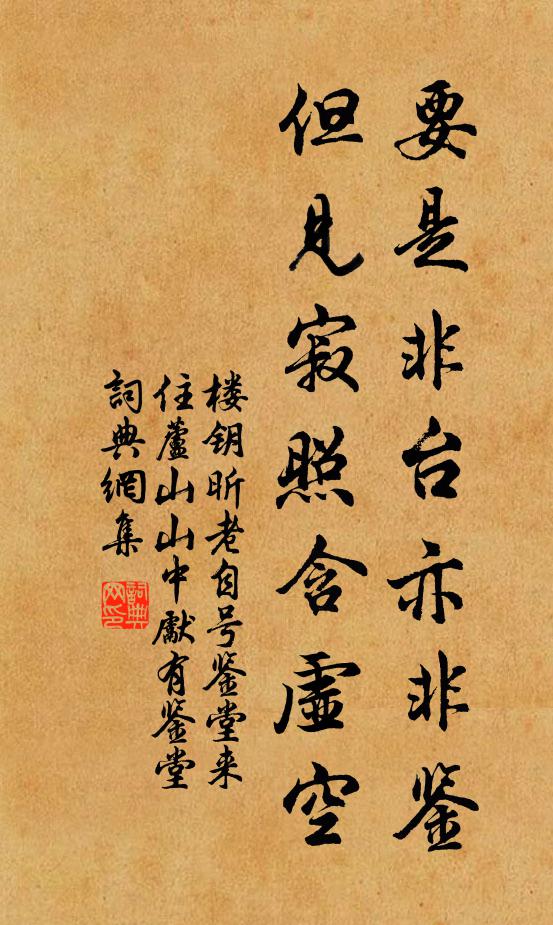 要是非台亦非鉴
但见寂照含虚空
楼钥昕老自号鉴堂来
住蘆山山中獻有鉴堂
詞典網集
詞典网印